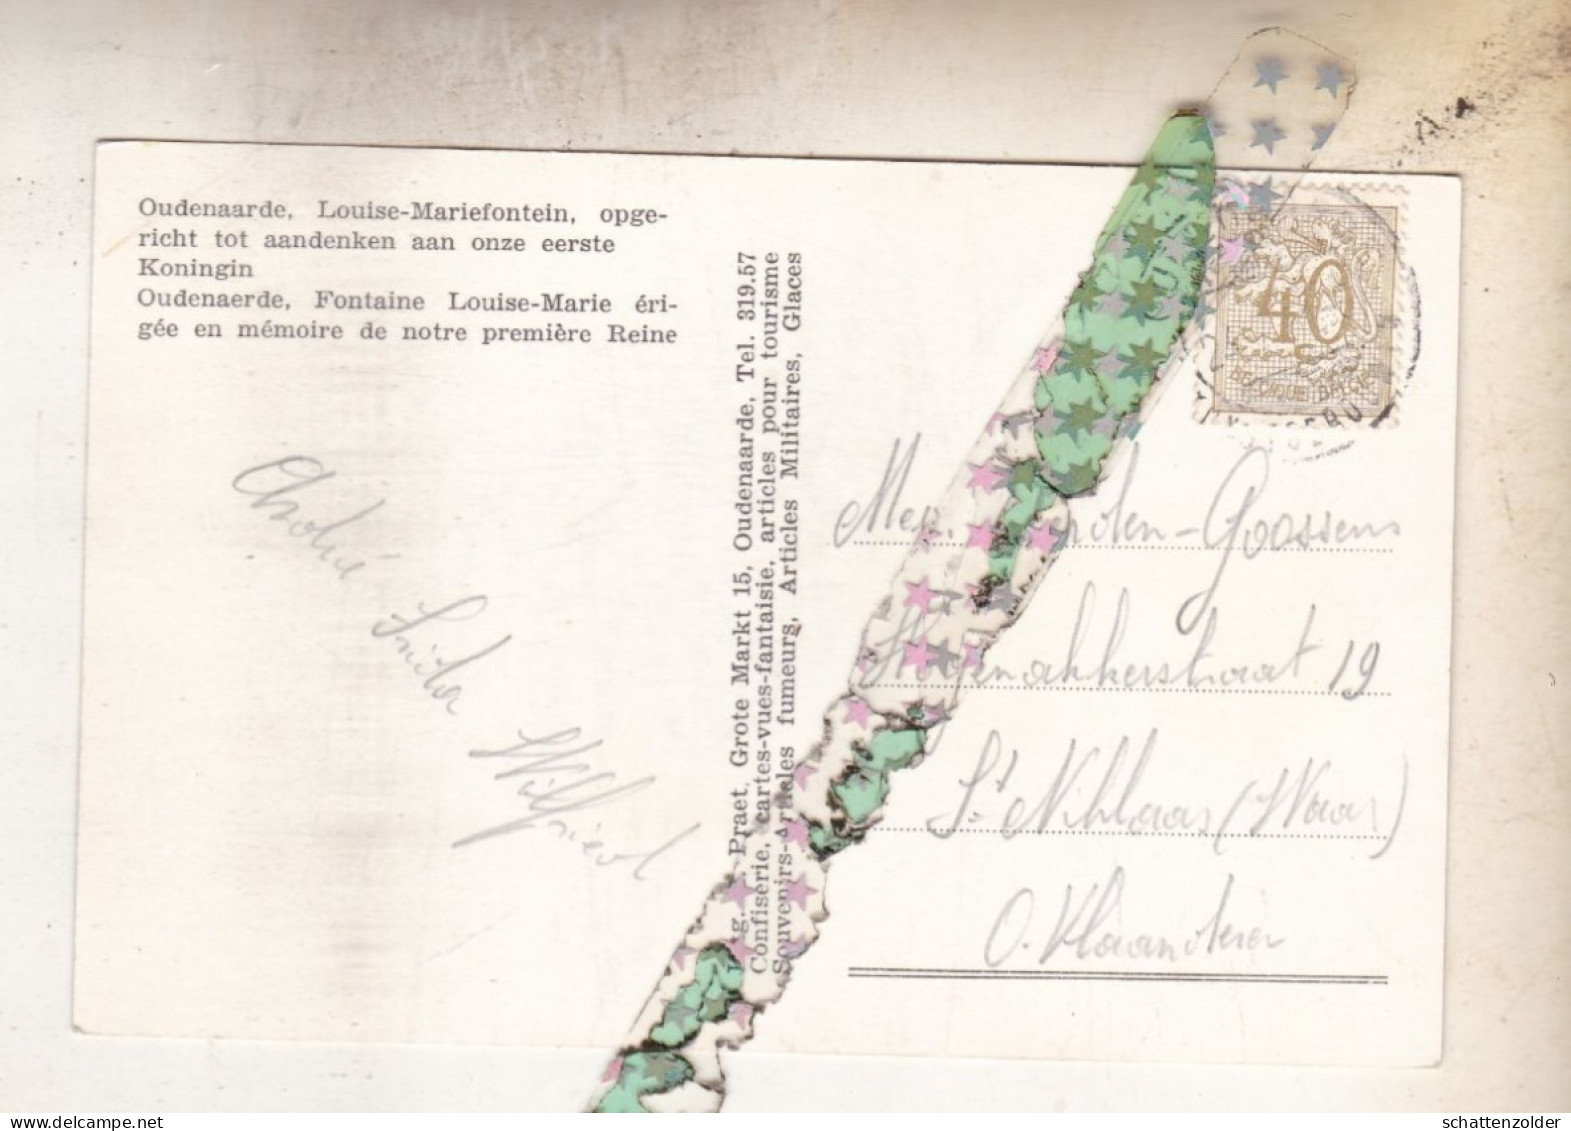 Oudenaarde, Louise-Mariefontein, opge-
richt tot aandenken aan onze eerste
Koningin
Oudenaerde, Fontaine Louise-Marie éri-
gée en mémoire de notre première Reine
Praet, Grote Markt 15, Oudenaarde, Tel. 319.57
Confiserie, cartes-vues-fantaisie, articles pour tourisme
Souvenirs-Articles fumeurs, Articles Militaires, Glaces
40
BELGIQUE BELGIE
Wilfried
Goossens
19
St Niklaas (Waas)
O. Vlaanderen
www.delcampe.net
schattenzolder